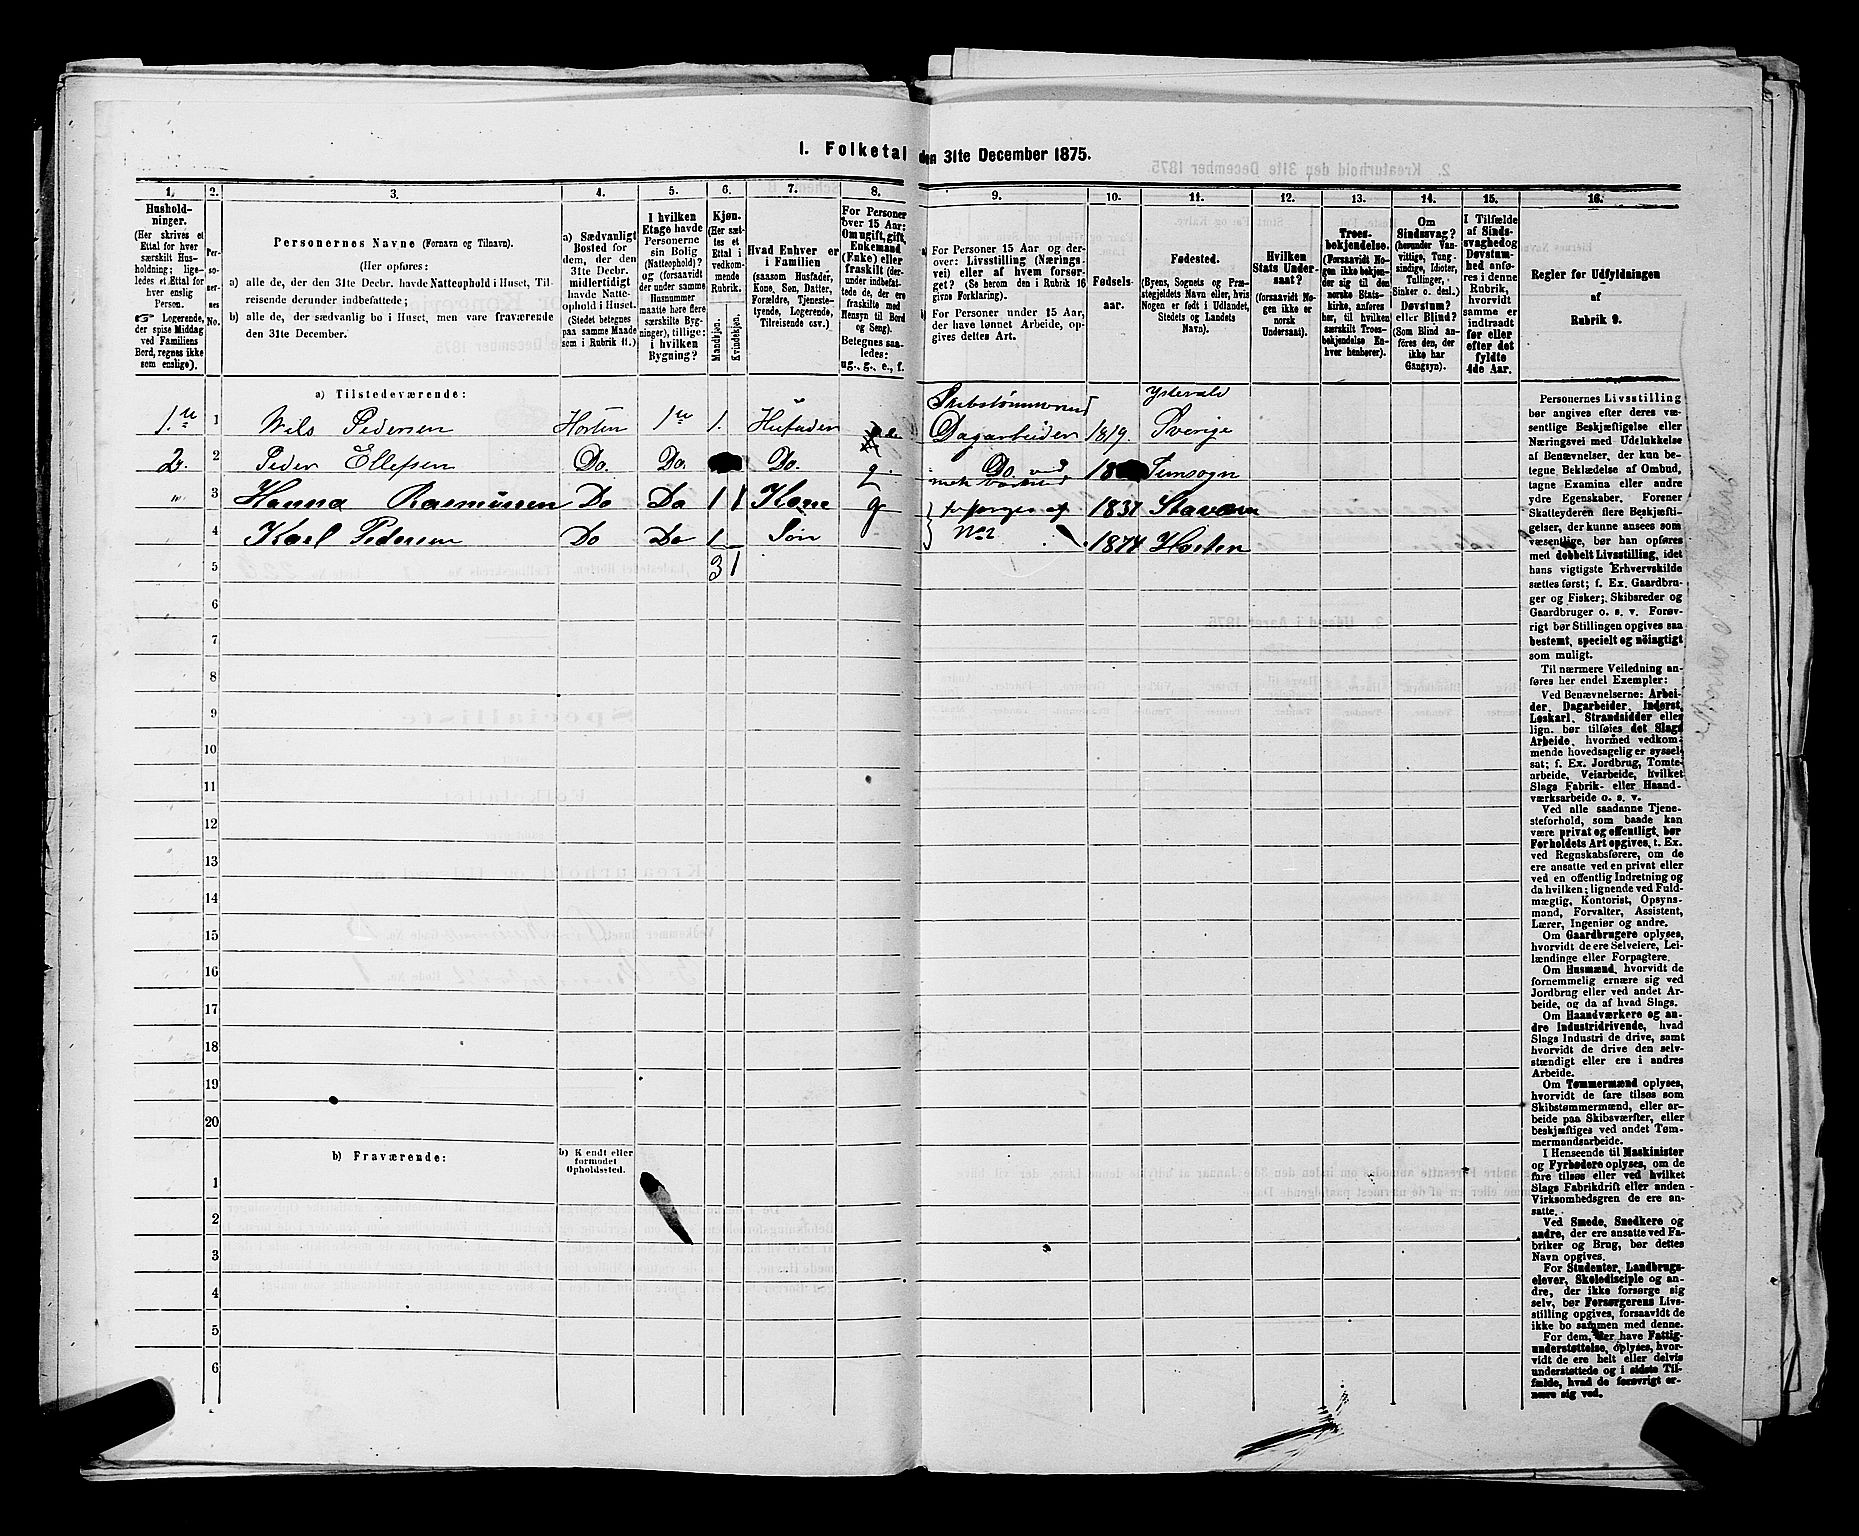 I. Folketal den 31te December 1875.
1. 2. 3. 4. 5. 6. 7. 8. 9. 10. 11. 12. 13. 14. 15. 16.
Hushold-
ninger.
(Her skrives et
Ettal for hver
særskilt Hus-
holdning; lige-
ledes et Ettal for
hver enslig
Person.
Logerende,
der spise Middag
ved Familiens
Bord, regnes ikke
som enslige).
Per-
so-
ner-
nes
No.
Personernes Navne (Fornavn og Tilnavn).
(Her opføres:
a) alle de, der den 31te Decbr. havde Natteophold i Huset, Til-
reisende derunder indbefattede;
b) alle de, der sædvanlig bo i Huset, men vare fraværende
den 31te December.
a) Sædvanligt
Bosted for
dem, der den
31te Decbr.
midlertidigt
havde Natte-
ophold i Huset.
(Stedet betegnes
paa samme Maade
som i Rubrik 11.)
I hvilken
Etage havde
Personerne
sin Bolig
(Natteophold)?
og (forsaavidt
der under samme
Husnummer
maatte høre flere
særskilte Byg-
ninger), tillige:
i hvilken
Bygning?
Kjøn.
(Her sæt-
tes et
Ettal i
vedkom-
mende
Rubrik.
Mandkjøn.
Kvindekjøn.
Hvad Enhver er
i Familien
(saasom Husfader,
Kone, Søn, Datter,
Forældre, Tjeneste-
tyende, Logerende,
Tilreisende osv.)
For Personer
over 15 Aar:
Om ugift, gift,
Enkemand
(Enke) eller
fraskilt (der-
under indbefat-
tede de, ere
fraskilte med
Hensyn til Bord
og Seng).
Betegnes saa-
ledes:
ug., g., e., f.
a) For Personer 15 Aar og der-
over: Livsstilling (Nærings-
vei) eller af hvem forsør-
get? (Se herom den i Rubrik 16
givne Forklaring).
b) For Personer under 15 Aar,
der have lønnet Arbeide, op-
gives dettes Art.
Fødsels-
aar.
Fødested.
(Byens, Sognets og Præ-
stegjeldets Navn eller, hvis
Nogen er født i Udlandet,
Stedets og Landets
Navn).
Hvilken
Stats Under-
saat?
(forsaavidt No-
gen ikke er
norsk
Undersaat).
Troes-
bekjendelse.
(Forsaavidt No-
gen ikke bekjen-
der sig til den
norske Stats-
kirke, anføres
her, til hvilken
særskilt Troes-
bekjendelse En-
hver henhører).
Om
Sindssvag?
(herunder Van-
vittige, Tung-
sindige, Idioter,
Tullinger,
Sinker o. desl.)
Døvstum?
eller Blind?
(Som Blind an-
føres den, der
ikke har
Gangsyn).
I Tilfælde
af Sinds-
svaghed og
Døvstum-
hed anfø-
res i denne
Rubrik,
hvorvidt
samme er
indtraadt
før eller
efter det
fyldte
4de Aar.
Regler for Udfyldningen
af
Rubrik 9.
a) Tilstedeværende:
1 Nils Pedersen Horten 1 1. Husfader Dagarbeider 1819. Sverige
2 Peder Ellefsen Do. Do. Do. g. Do. ved 18
3 Hanna Rasmussen Do Do 1 1 Kone g forsørges af 1831 Stavern
4 Karl Pedersen Do Do 1 Søn No 2 1874 Horten
5 3 1
6
7
8
9
10
11
12
13
14
15
16
17
18
19
20
b) Fraværende:
b) Kjendt eller
formodet
Opholdssted.
1
2
3
4
5
6
Personernes Livsstilling
bør angives efter deres væ-
sentlige Beskjæftigelse eller
Næringsvei med Udelukkelse
af Benævnelser, der kun be-
tegne Beklædelse af Ombud,
tagne Examina eller andre
ydre Egenskaber. Forener
Skatteyderen flere Beskjæfti-
gelser, der kunne ansees som
væsentlige, bør han opføres
med dobbelt Livsstilling, idet
hans vigtigste Erhvervskilde
sættes først; f. Ex. Gaardbru-
ger og Fisker; Skibsreder og
Gaardbruger o. s. v. Forøv-
rigt bør Stillingen opgives saa
bestemt, specielt og nöiagtigt
som muligt.
Til nærmere Veiledning an-
føres her endel Exempler:
Ved Benævnelserne: Arbei-
der, Dagarbeider, Inderst,
Løskarl, Strandsidder eller
lign. bør tilføies det Slags
Arbeide, hvormed vedkom-
mende hovedsagelig er syssel-
sat; f. Ex. Jordbrug, Tomte-
arbeide, Veiarbeide, hvilket
Slags Fabrik- eller Haand-
værksarbeide o. s. v.
Ved alle saadanne Tjene-
steforhold, som baade kan
være privat og offentligt, bør
Forholdets Art opgives, t. Ex.
ved Regnskabsførere, om de
ere ansatte ved en privat eller
ved en offentlig Indretning og
da hvilken; lignende ved Fuld-
mægtig, Kontorist, Opsyns-
mand, Forvalter, Assistent,
Lærer, Ingeniør og andre.
Om Gaardbrugere oplyses,
hvorvidt de ere Selveiere, Lei-
lændinge eller Forpagtere.
Om Husmænd, hvorvidt de
fornemmelig ernære sig ved
Jordbrug eller ved andet Ar-
beide, og da af hvad Slags.
Om Haandværkere og an-
dre Industridrivende, hvad
Slags Industri de drive, samt
hvorvidt de drive den selv-
stændigt eller ere i andres
Arbeide.
Om Tømmermænd oplyses,
hvorvidt de fare tilsøs som
Skibstømmermænd, eller ar-
beide paa Skibsværfter, eller
beskjæftiges ved andet Tøm-
mermandsarbeide.
I Henseende til Maskinister
og Fyrbødere oplyses, om de
fare tilsøs eller ved hvilket
Slags Fabrikdrift eller anden
Virksomhedsgren de ere an-
satte.
Ved Smede, Snedkere og
andre, der ere ansatte ved Fa-
briker og Brug, bør dettes
Navn opgives.
For Studenter, Landbrugs-
elever, Skoledisciple og an-
dre, der ikke forsørge sig
selv, bør Forsørgerens Livs-
stilling opgives, forsaavidt de
ikke bo sammen med denne.
For dem, der have Fattig-
understøttelse, oplyses, hvor-
vidt de ere helt eller delvis
understøttede og i sidste Til-
fælde, hvad de forøvrigt er-
nære sig ved.